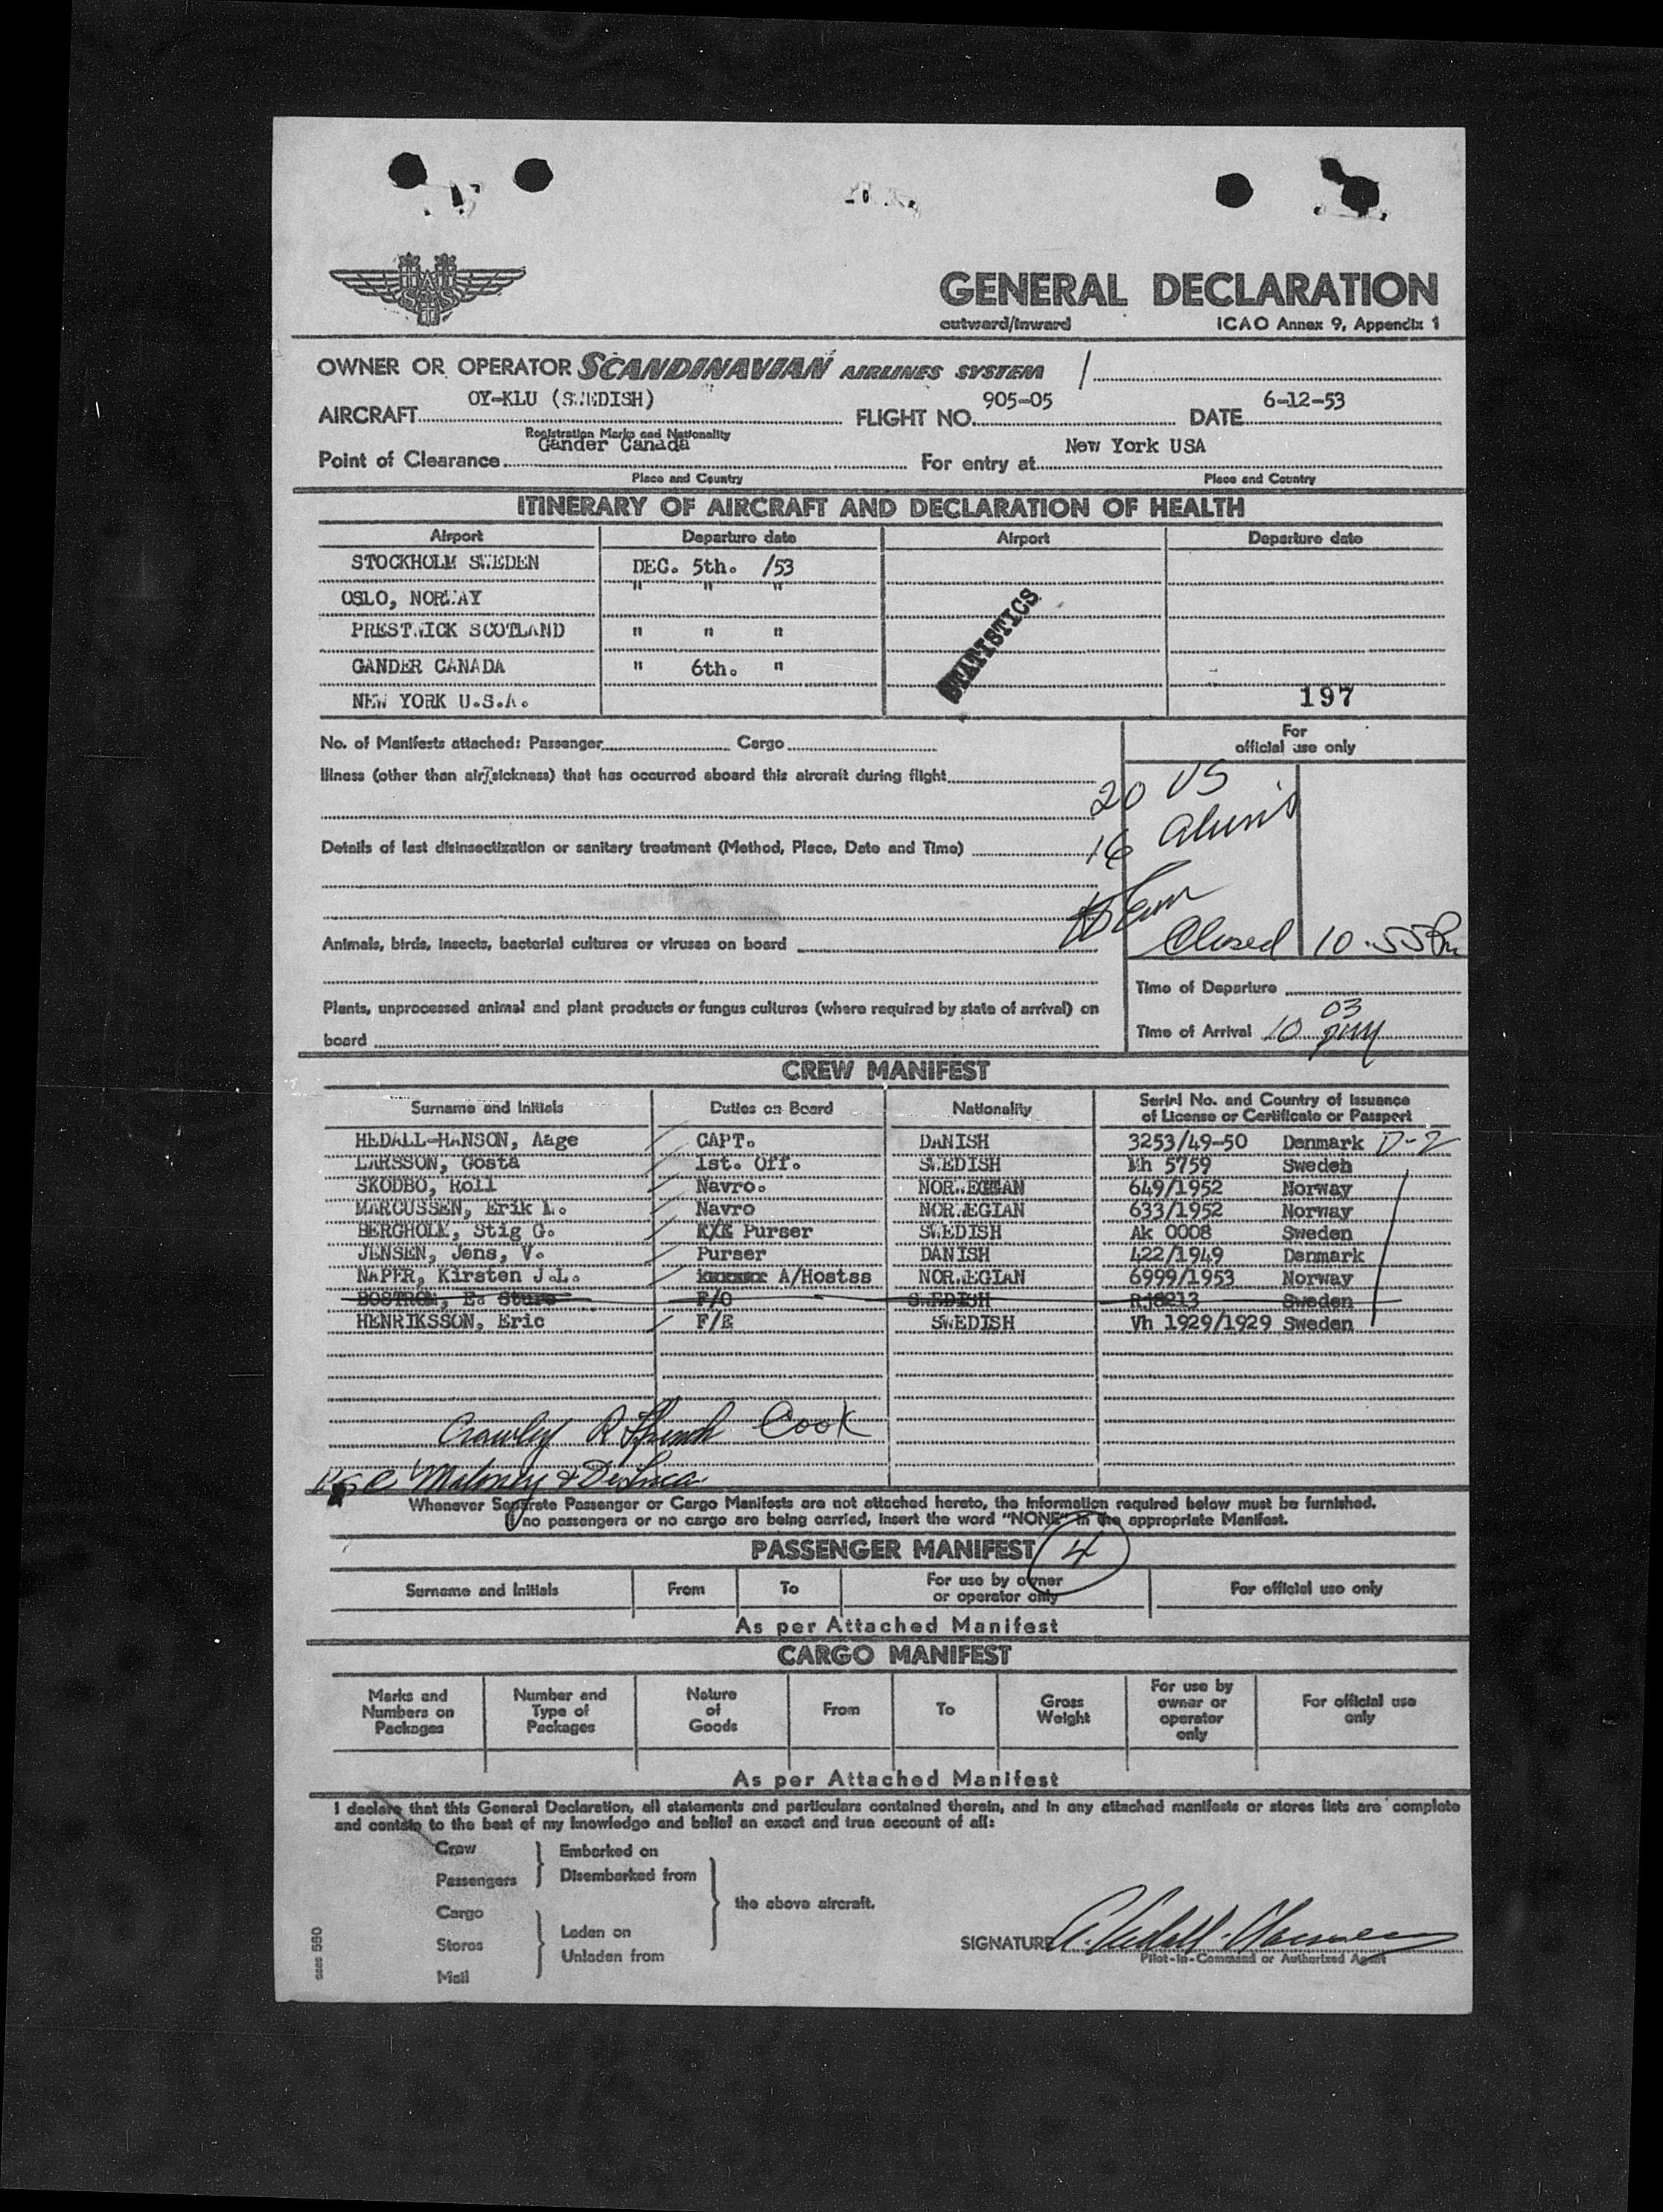 GENERAL DECLARATION
outward/inward ICAO Annex 9, Appendix 1
OWNER OR OPERATOR SCANDINAVIAN AIRLINES SYSTEM
AIRCRAFT OY-KLU (SWEDISH) FLIGHT NO. 905-05 DATE 6-12-53
Registration Marks and Nationality
Point of Clearance Gander Canada For entry at New York USA
Place and Country Place and Country
ITINERARY OF AIRCRAFT AND DECLARATION OF HEALTH
Airport Departure date Airport Departure date
STOCKHOLM SWEDEN DEC. 5th. /53
OSLO, NORWAY " " "
PRESTWICK SCOTLAND " " "
GANDER CANADA " 6th. "
STATISTICS
NEW YORK U.S.A. 197
No. of Manifests attached: Passenger Cargo
For
official use only
Illness (other than air/sickness) that has occurred aboard this aircraft during flight
20 US
16
Details of last disinsectization or sanitary treatment (Method, Place, Date and Time)
Animals, birds, insects, bacterial cultures or viruses on board
Closed 10.55 Pm
Time of Departure
Plants, unprocessed animal and plant products or fungus cultures (where required by state of arrival) on
board
Time of Arrival 10 03 pm
CREW MANIFEST
Surname and Initials Duties on Board Nationality Serial No. and Country of Issuance
of License or Certificate or Passport
HEDALL-HANSON, Aage CAPT. DANISH 3253/49-50 Denmark D-2
LARSSON, Gosta 1st. Off. SWEDISH Mh 5759 Sweden
SKODBO, Rolf Navro. NORWEGIAN 649/1952 Norway
MARCUSSEN, Erik M. Navro NORWEGIAN 633/1952 Norway
BERGHOLM, Stig G. Purser SWEDISH Ak 0008 Sweden
JENSEN, Jens, V. Purser DANISH 422/1949 Denmark
NAPER, Kirsten J.L. A/Hostss NORWEGIAN 6999/1953 Norway
BOSTROM, E. Sture F/O SWEDISH Rj8213 Sweden
HENRIKSSON, Eric F/E SWEDISH Vh 1929/1929 Sweden
Crawley Cook
Maloney & DeLuca
Whenever Separate Passenger or Cargo Manifests are not attached hereto, the information required below must be furnished.
If no passengers or no cargo are being carried, insert the word "NONE" in the appropriate Manifest.
PASSENGER MANIFEST 4
Surname and Initials From To For use by owner
or operator only For official use only
As per Attached Manifest
CARGO MANIFEST
Marks and
Numbers on
Packages Number and
Type of
Packages Nature
of
Goods From To Gross
Weight For use by
owner or
operator
only For official use
only
As per Attached Manifest
I declare that this General Declaration, all statements and particulars contained therein, and in any attached manifests or stores lists are complete
and contain to the best of my knowledge and belief an exact and true account of all:
Crew Embarked on
Passengers Disembarked from
the above aircraft.
Cargo
Laden on
Stores
Unladen from
Mail
SIGNATURE
Pilot-in-Command or Authorized Agent